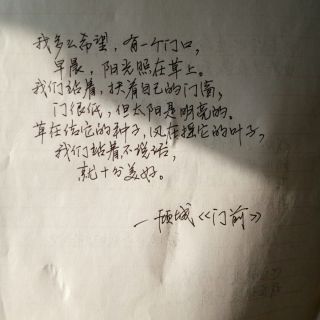 我多么希望，有一个门口，
早晨，阳光照在草上。
我们站着，扶着自己的门窗，
门很低，但太阳是明亮的。
草在结它的种子，风在摇它的叶子，
我们站着不说话，
就十分美好。
—顾城《门前》